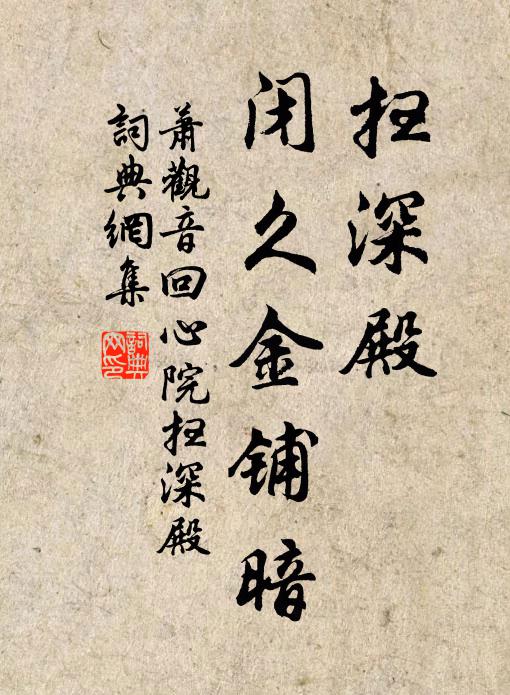 扫深殿
闭久金铺暗
萧觀音回心院扫深殿
詞典網集
詞典網印